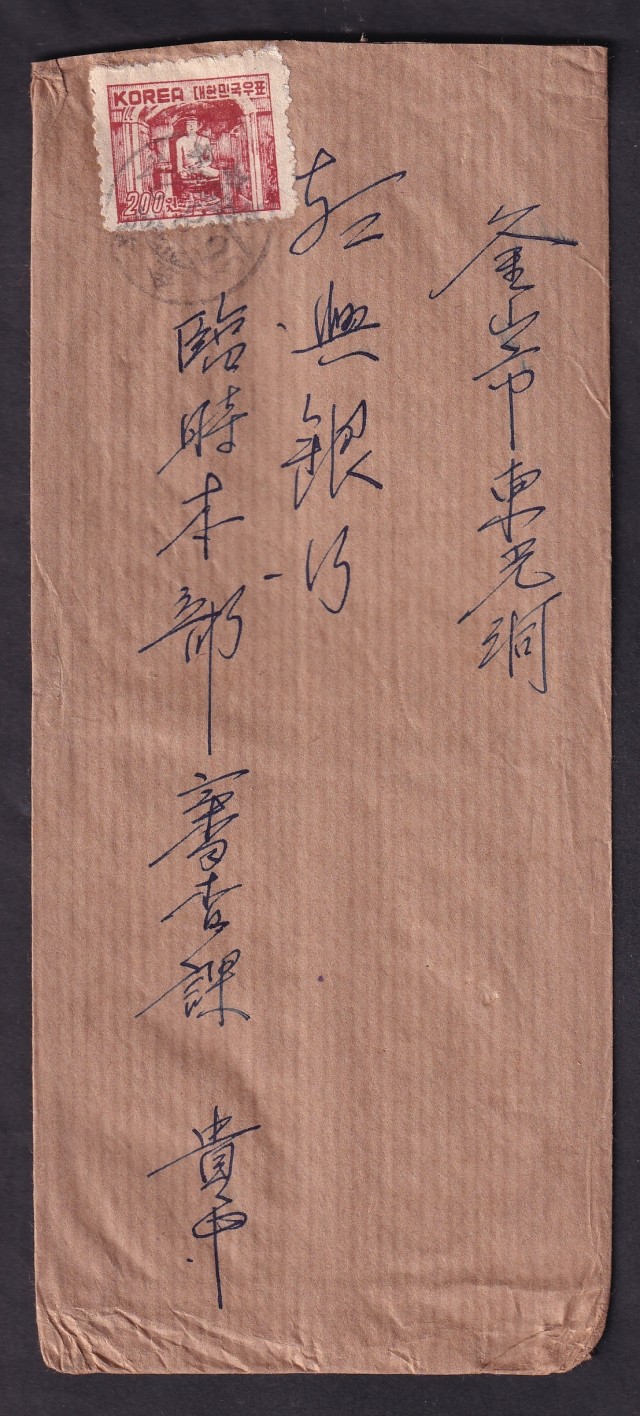 KOREA 대한민국우표
200원
釜山市東光洞
朝興銀行
臨時本部審査課 貴中